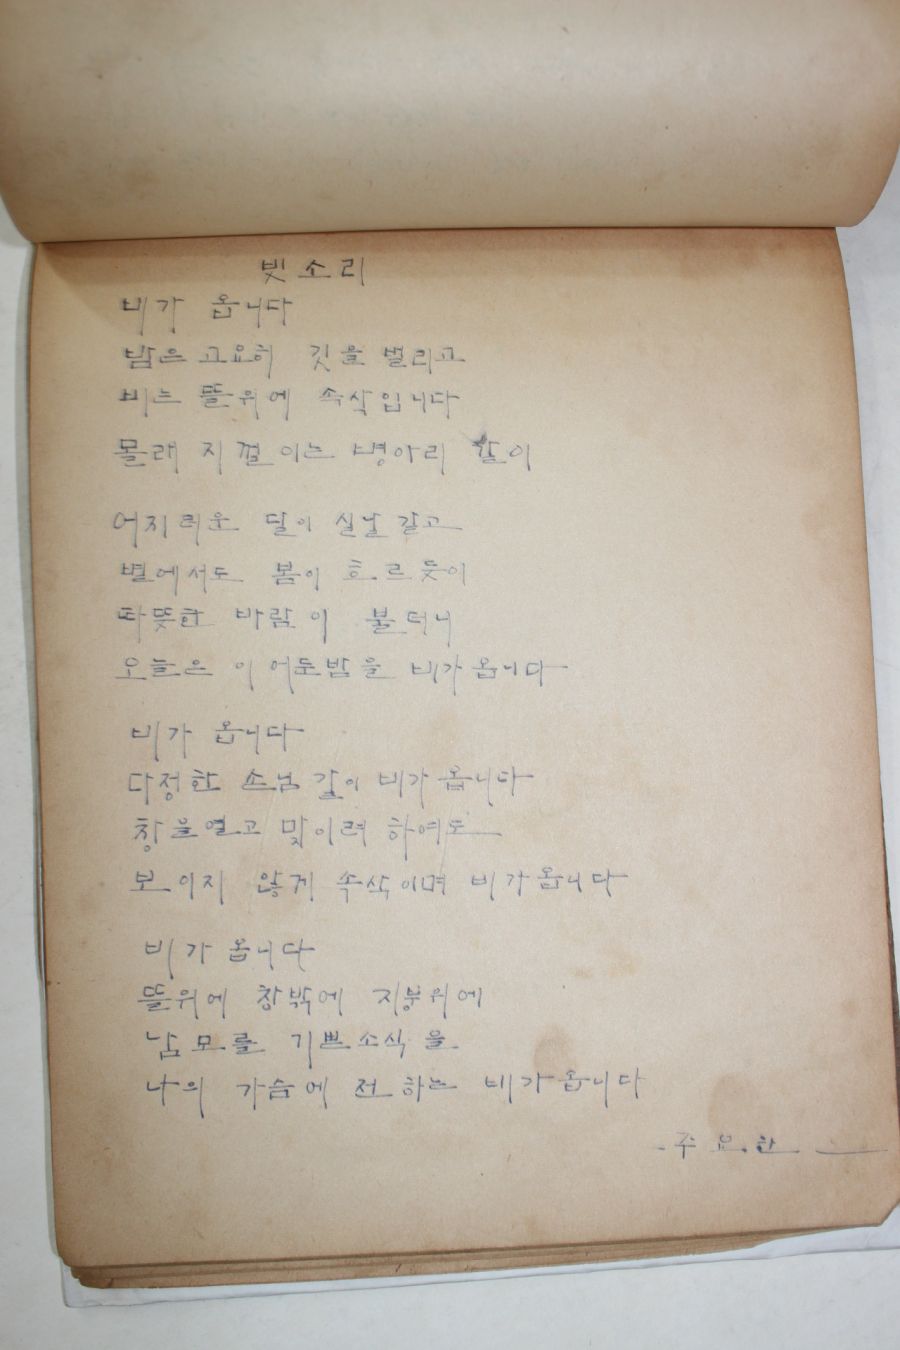 빗소리
비가 옵니다
밤은 고요히 깃을 벌리고
비는 뜰위에 속삭입니다
몰래 지껄이는 병아리 같이
어지러운 달이 실낱 같고
별에서도 봄이 흐르듯이
따뜻한 바람이 불더니
오늘은 이 어둔밤을 비가 옵니다
비가 옵니다
다정한 손님 같이 비가 옵니다
창을열고 맞이려 하여도
보이지 않게 속삭이며 비가옵니다
비가 옵니다
뜰위에 창밖에 지붕위에
남모를 기쁜소식을
나의 가슴에 전하는 비가옵니다
- 주요한 -